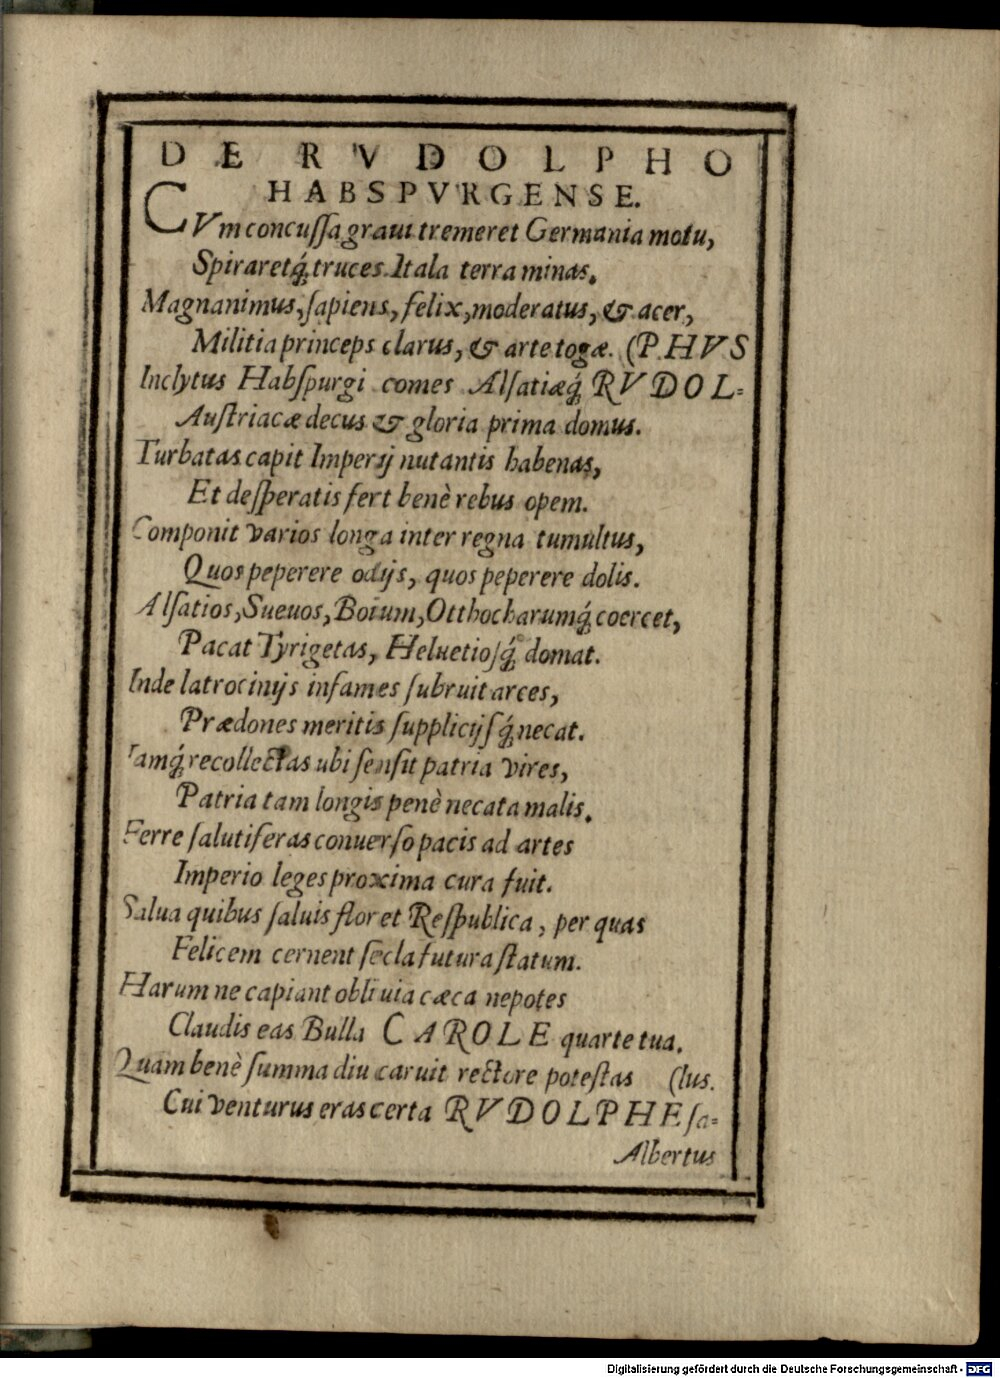 DE RVDOLPHO
HABSPVRGENSE.
CVm concussa graui tremeret Germania motu,
Spiraretq́; truces Itala terra minas.
Magnanimus, sapiens, felix, moderatus, & acer,
Militia princeps clarus, & arte togæ. (PHVS
Inclytus Habspurgi comes Alsatiæq́; RVDOL-
Austriacæ decus & gloria prima domus.
Turbatas capit Imperij nutantis habenas,
Et desperatis fert benè rebus opem.
Componit varios longa inter regna tumultus,
Quos peperere odijs, quos peperere dolis.
Alsatios, Sueuos, Boium, Otthocharumq́; coercet,
Pacat Tyrigetas, Heluetiosq́; domat.
Inde latrocinijs infames subruit arces,
Prædones meritis supplicijsq́; necat.
Iamq́; recollectas ubi sensit patria vires,
Patria tam longis penè necata malis.
Ferre salutiferas conuerso pacis ad artes
Imperio leges proxima cura fuit.
Salua quibus saluis floret Respublica, per quas
Felicem cernent secla futura statum.
Harum ne capiant obliuia cæca nepotes
Claudis eas Bulla CAROLE quarte tua.
Quam benè summa diu caruit rectore potestas (lus.
Cui venturus eras certa RVDOLPHE sa-
Albertus
Digitalisierung gefördert durch die Deutsche Forschungsgemeinschaft - DFG